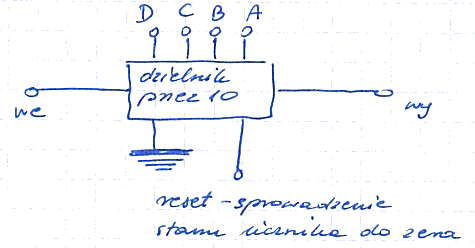 D C B A
dzielnik
przez 10
we
wy
reset - sprowadzenie
stanu licznika do zera